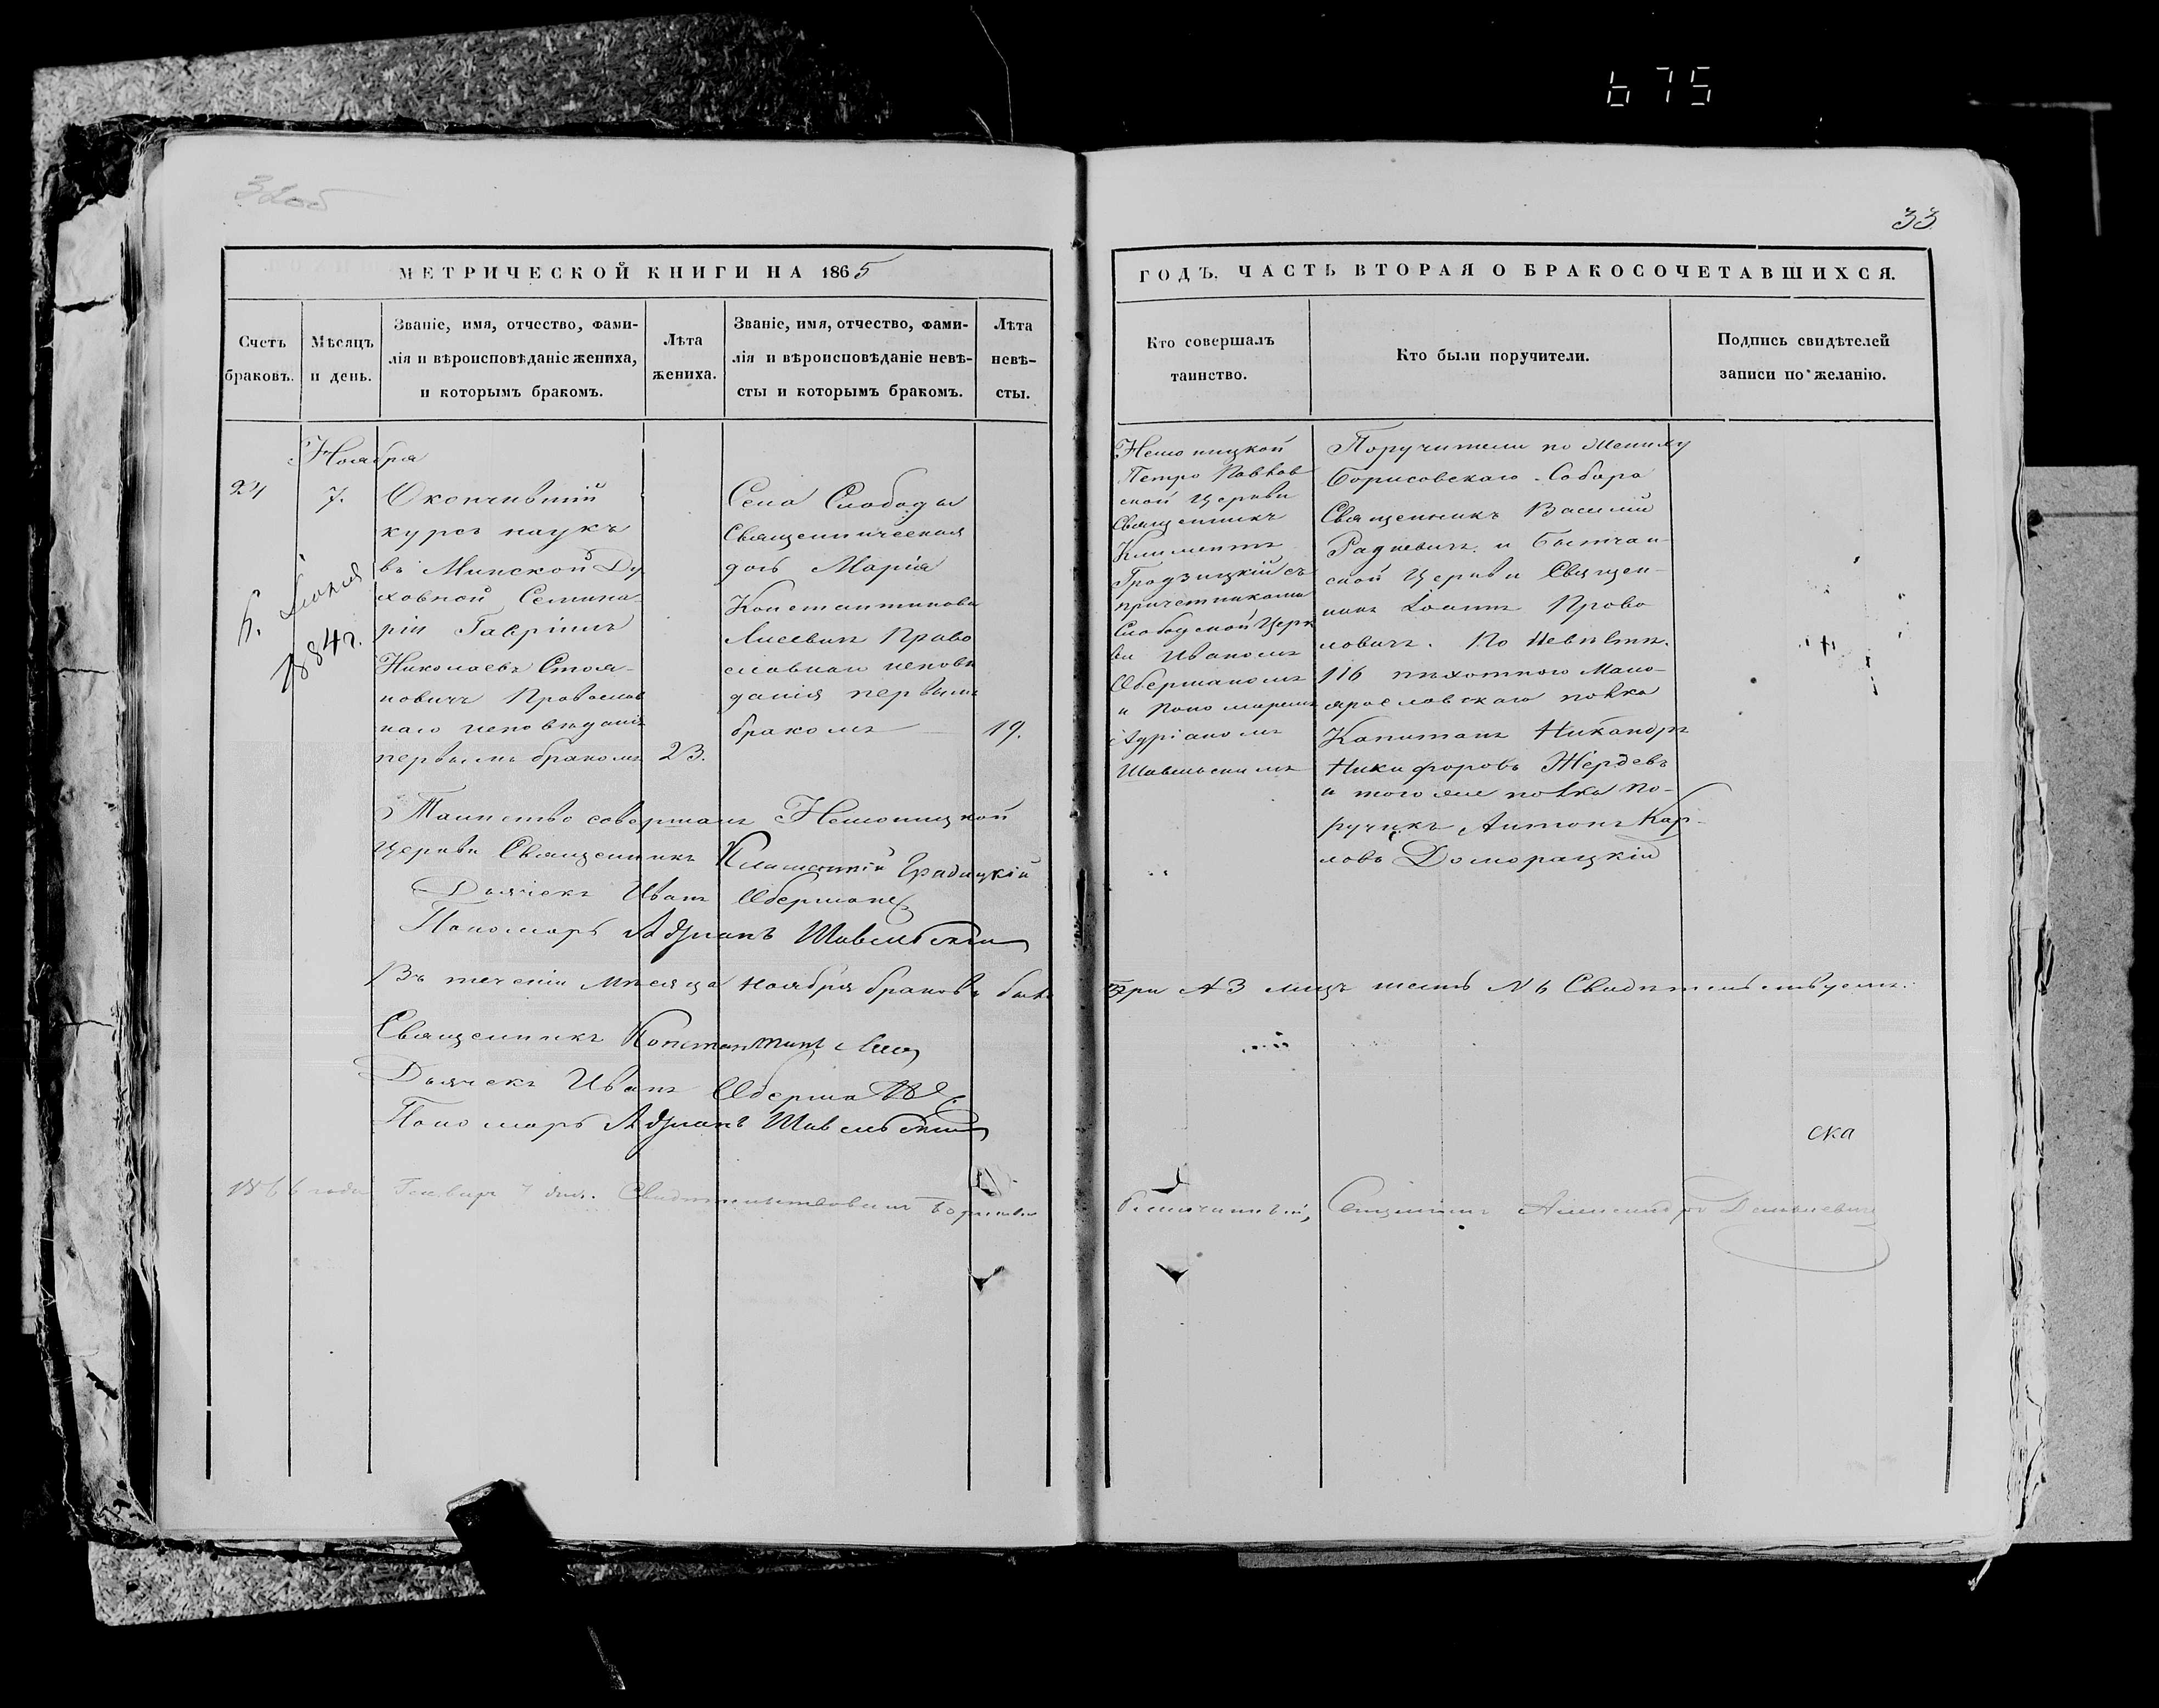 675
32об
33
МЕТРИЧЕСКОЙ КНИГИ НА 1865
ГОДЪ. ЧАСТЬ ВТОРАЯ О БРАКОСОЧЕТАВШИХСЯ.
Счетъ
браковъ.
Мѣсяцъ
и день.
Званіе, имя, отчество, фами-
лія и вѣроисповѣданіе жениха,
и которымъ бракомъ.
Лѣта
жениха.
Званіе, имя, отчество, фами-
лія и вѣроисповѣданіе невѣ-
сты и которымъ бракомъ.
Лѣта
невѣ-
сты.
Кто совершалъ
таинство.
Кто были поручители.
Подпись свидѣтелей
записи по желанію.
Ноября
24
7.
1884 г.
Окончившій
курсъ наукъ
въ Минской Ду
ховной Семина
ріи Гавріилъ
Николаевъ Стоя-
новичъ Православ
наго исповѣданія
первымъ бракомъ
23.
Села Слободы
Священническая
дочь Марія
Константинова
Лисевичъ Право
славнаго исповѣ
данія первымъ
бракомъ
19.
Немоницкой
Петро Павлов
ской Церкви
Священникъ
Климентъ
Градзицкій съ
причетниками
Слободской Церк
ви Иваномъ
Оберманомъ
и Пономаремъ
Адріаномъ
Шавельскимъ
Поручители по Жениху
Борисовскаго Собора
Священникъ Василій
Радкевичъ и Бытчан-
ской Церкви Священ-
никъ Іоаннъ Право
ловичъ. По Невѣстѣ.
116 пѣхотнаго Мало-
ярославскаго полка
Капитанъ Никаноръ
Никифоровъ Жердевъ
и того же полка По-
ручикъ Антонъ Кар-
ловъ Доморацкій
Таинство совершалъ Немоницкой
Церкви Священникъ Климентій Градицкій
Дьячекъ Иванъ Оберманъ
Пономарь Адріанъ Шавельскій
Въ теченіи мѣсяца Ноября браковъ было
три № 3 лицъ шесть № 6 Свидѣтельствуемъ.
Священникъ Константинъ
Дьячекъ Иванъ Оберманъ
Пономарь Адріанъ Шавельскій
ска
1866 года Генваря 7 дня. Свидѣтельствовалъ
Благочинный, Священникъ Александръ